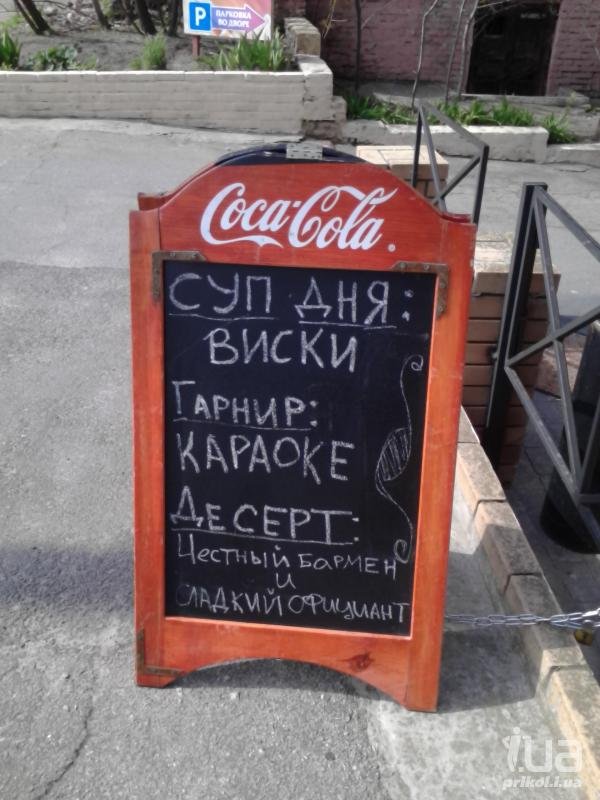 P ПАРКОВКА
ВО ДВОРЕ
Coca-Cola®
СУП ДНЯ:
ВИСКИ
ГАРНИР:
КАРАОКЕ
ДЕСЕРТ:
Честный бармен
и
сладкий официант
i.ua
prikol.i.ua